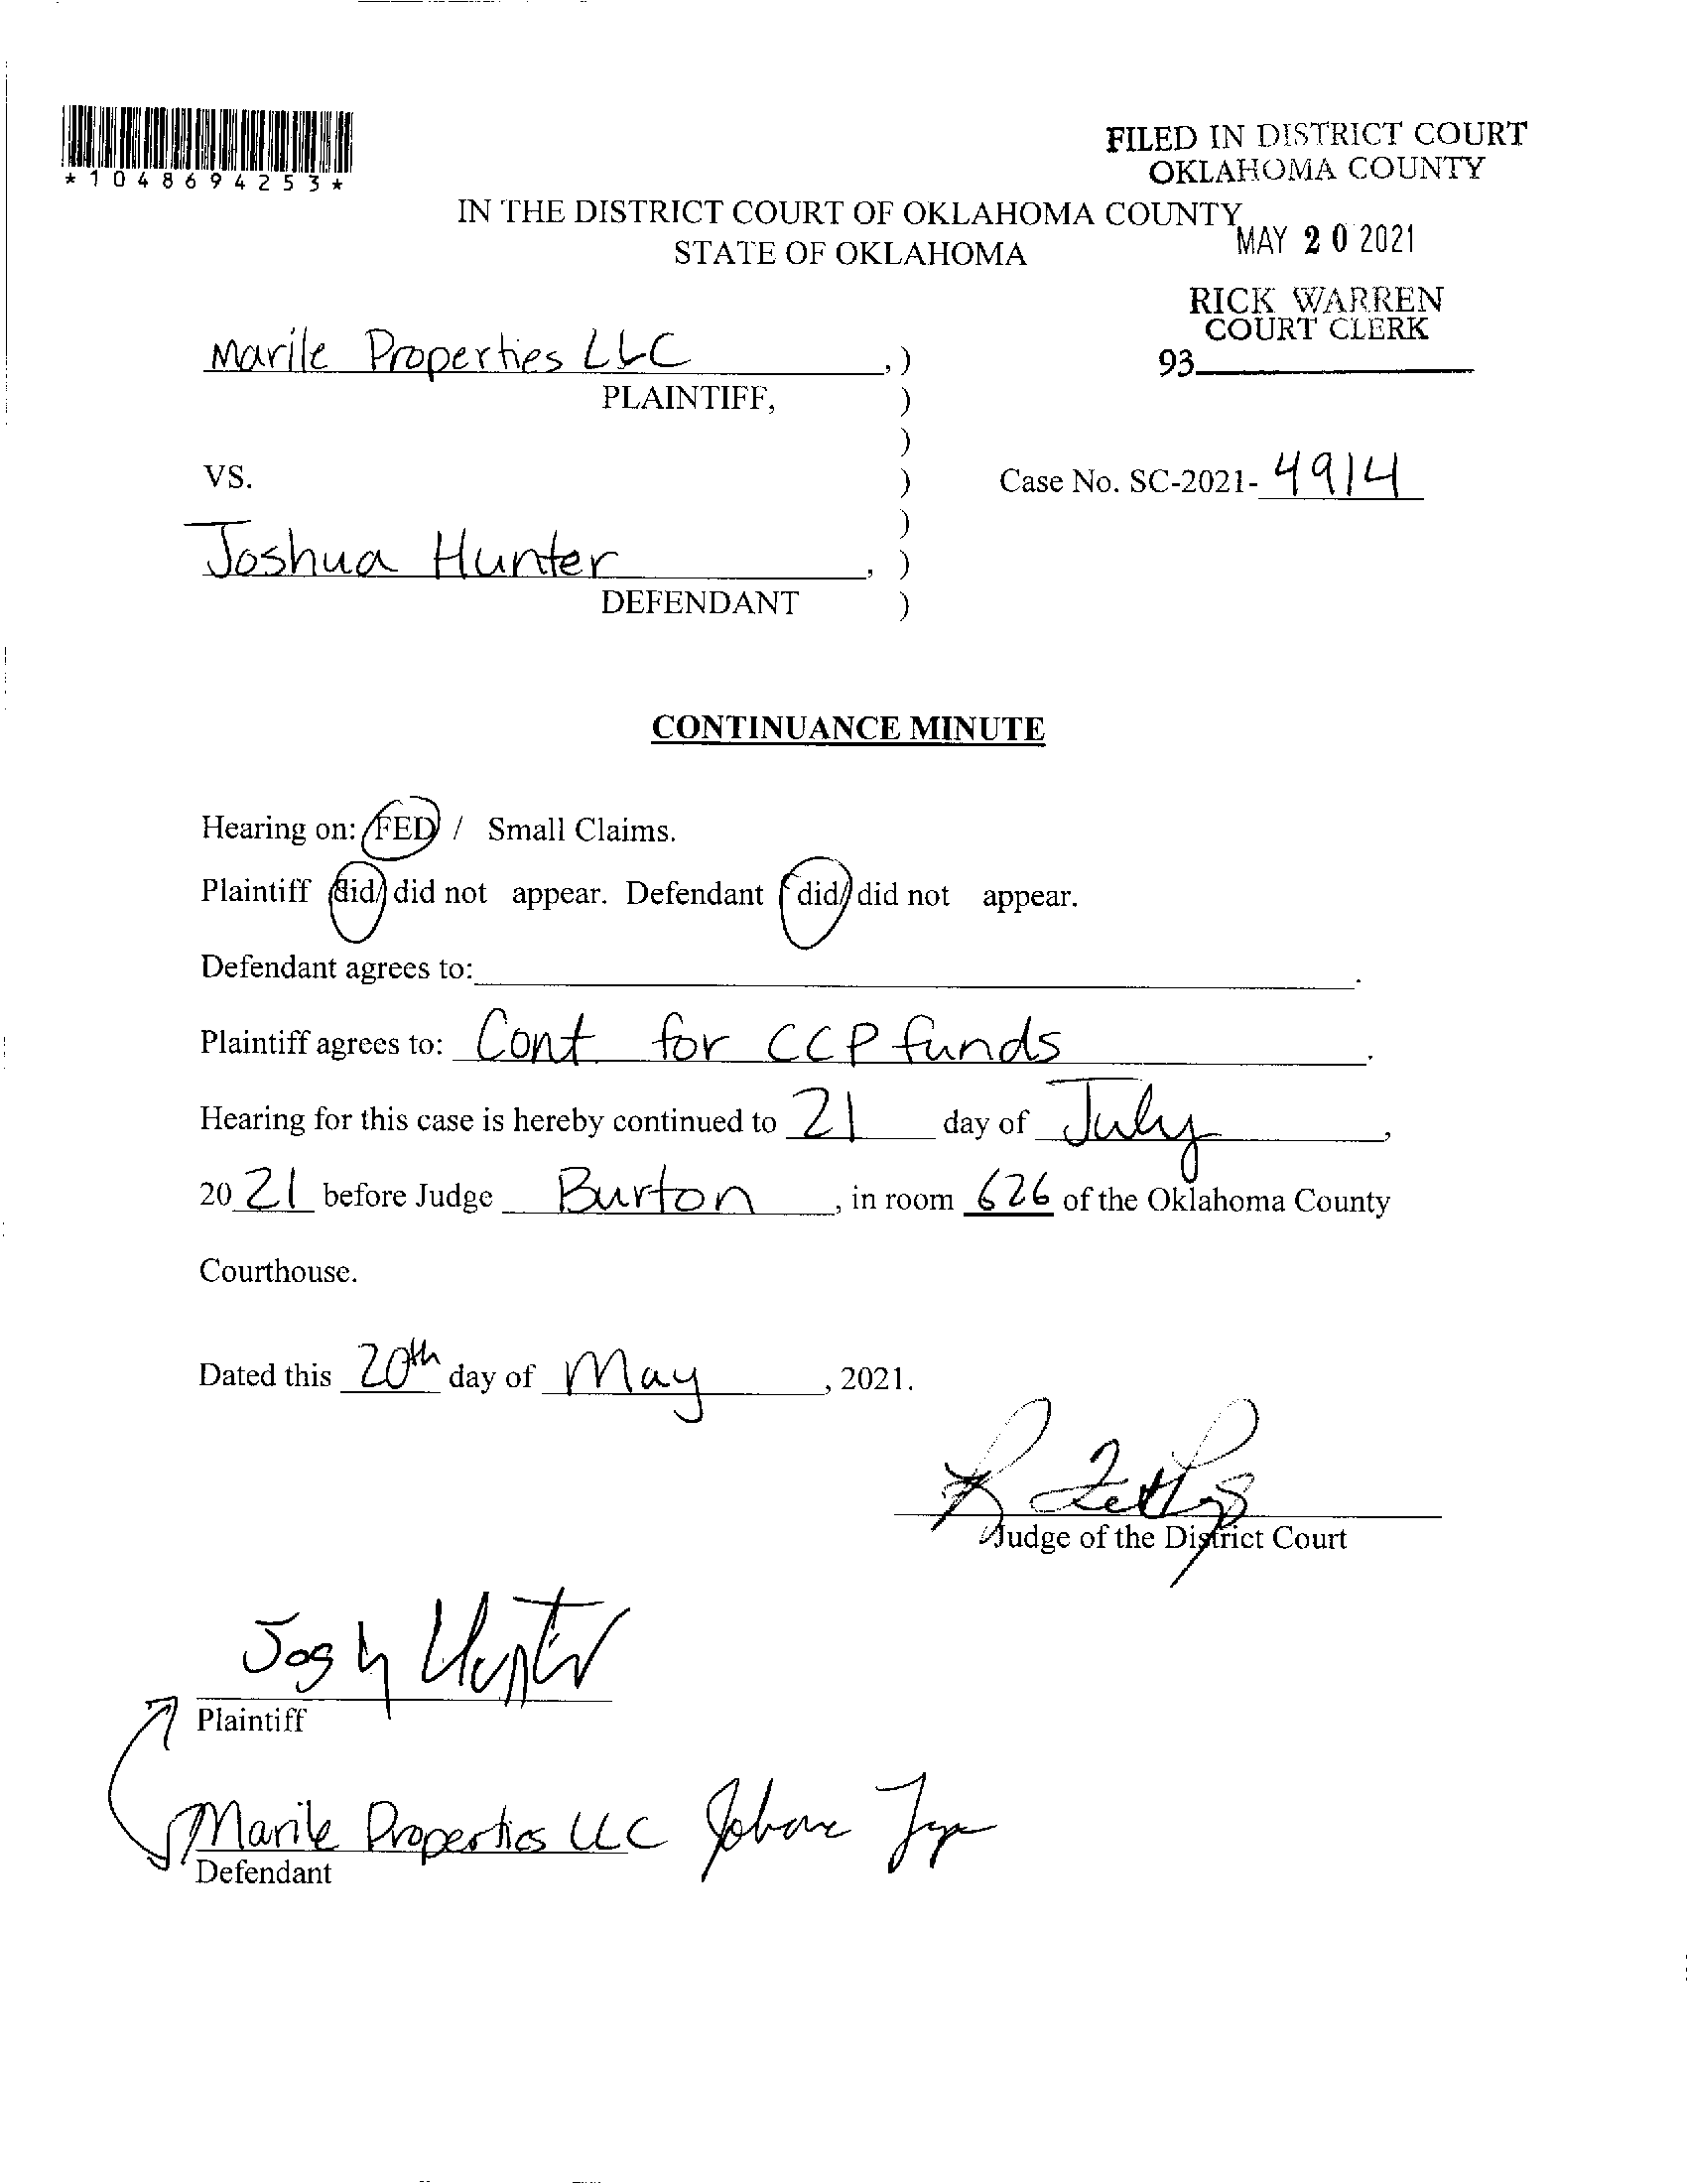 *1048694253*
FILED IN DISTRICT COURT
OKLAHOMA COUNTY
IN THE DISTRICT COURT OF OKLAHOMA COUNTY
STATE OF OKLAHOMA
MAY 20 2021
RICK WARREN
COURT CLERK
93
Marile Properties LLC, )
PLAINTIFF, )
)
VS. )
Case No. SC-2021-4914
)
Joshua Hunter, )
DEFENDANT )
CONTINUANCE MINUTE
Hearing on: FED / Small Claims.
Plaintiff did/ did not appear. Defendant did/ did not appear.
Defendant agrees to: .
Plaintiff agrees to: Cont for CCP funds.
Hearing for this case is hereby continued to 21 day of July,
2021 before Judge Burton, in room 626 of the Oklahoma County
Courthouse.
Dated this 20th day of May, 2021.
Judge of the District Court
Josh Hunter
Plaintiff
Marile Properties LLC
Defendant